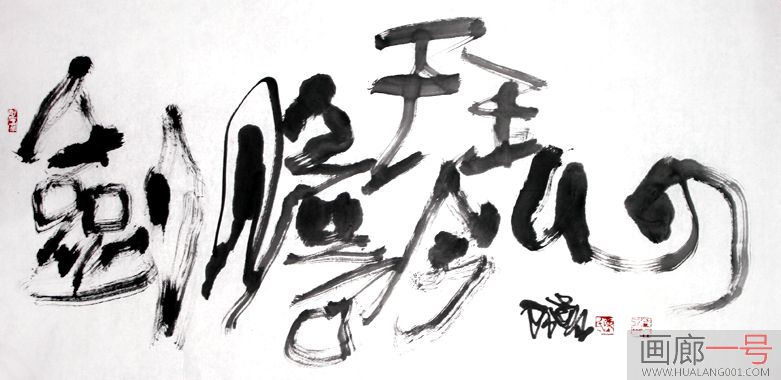 劍膽琴心
画廊一号
WWW.HUALANG001.COM